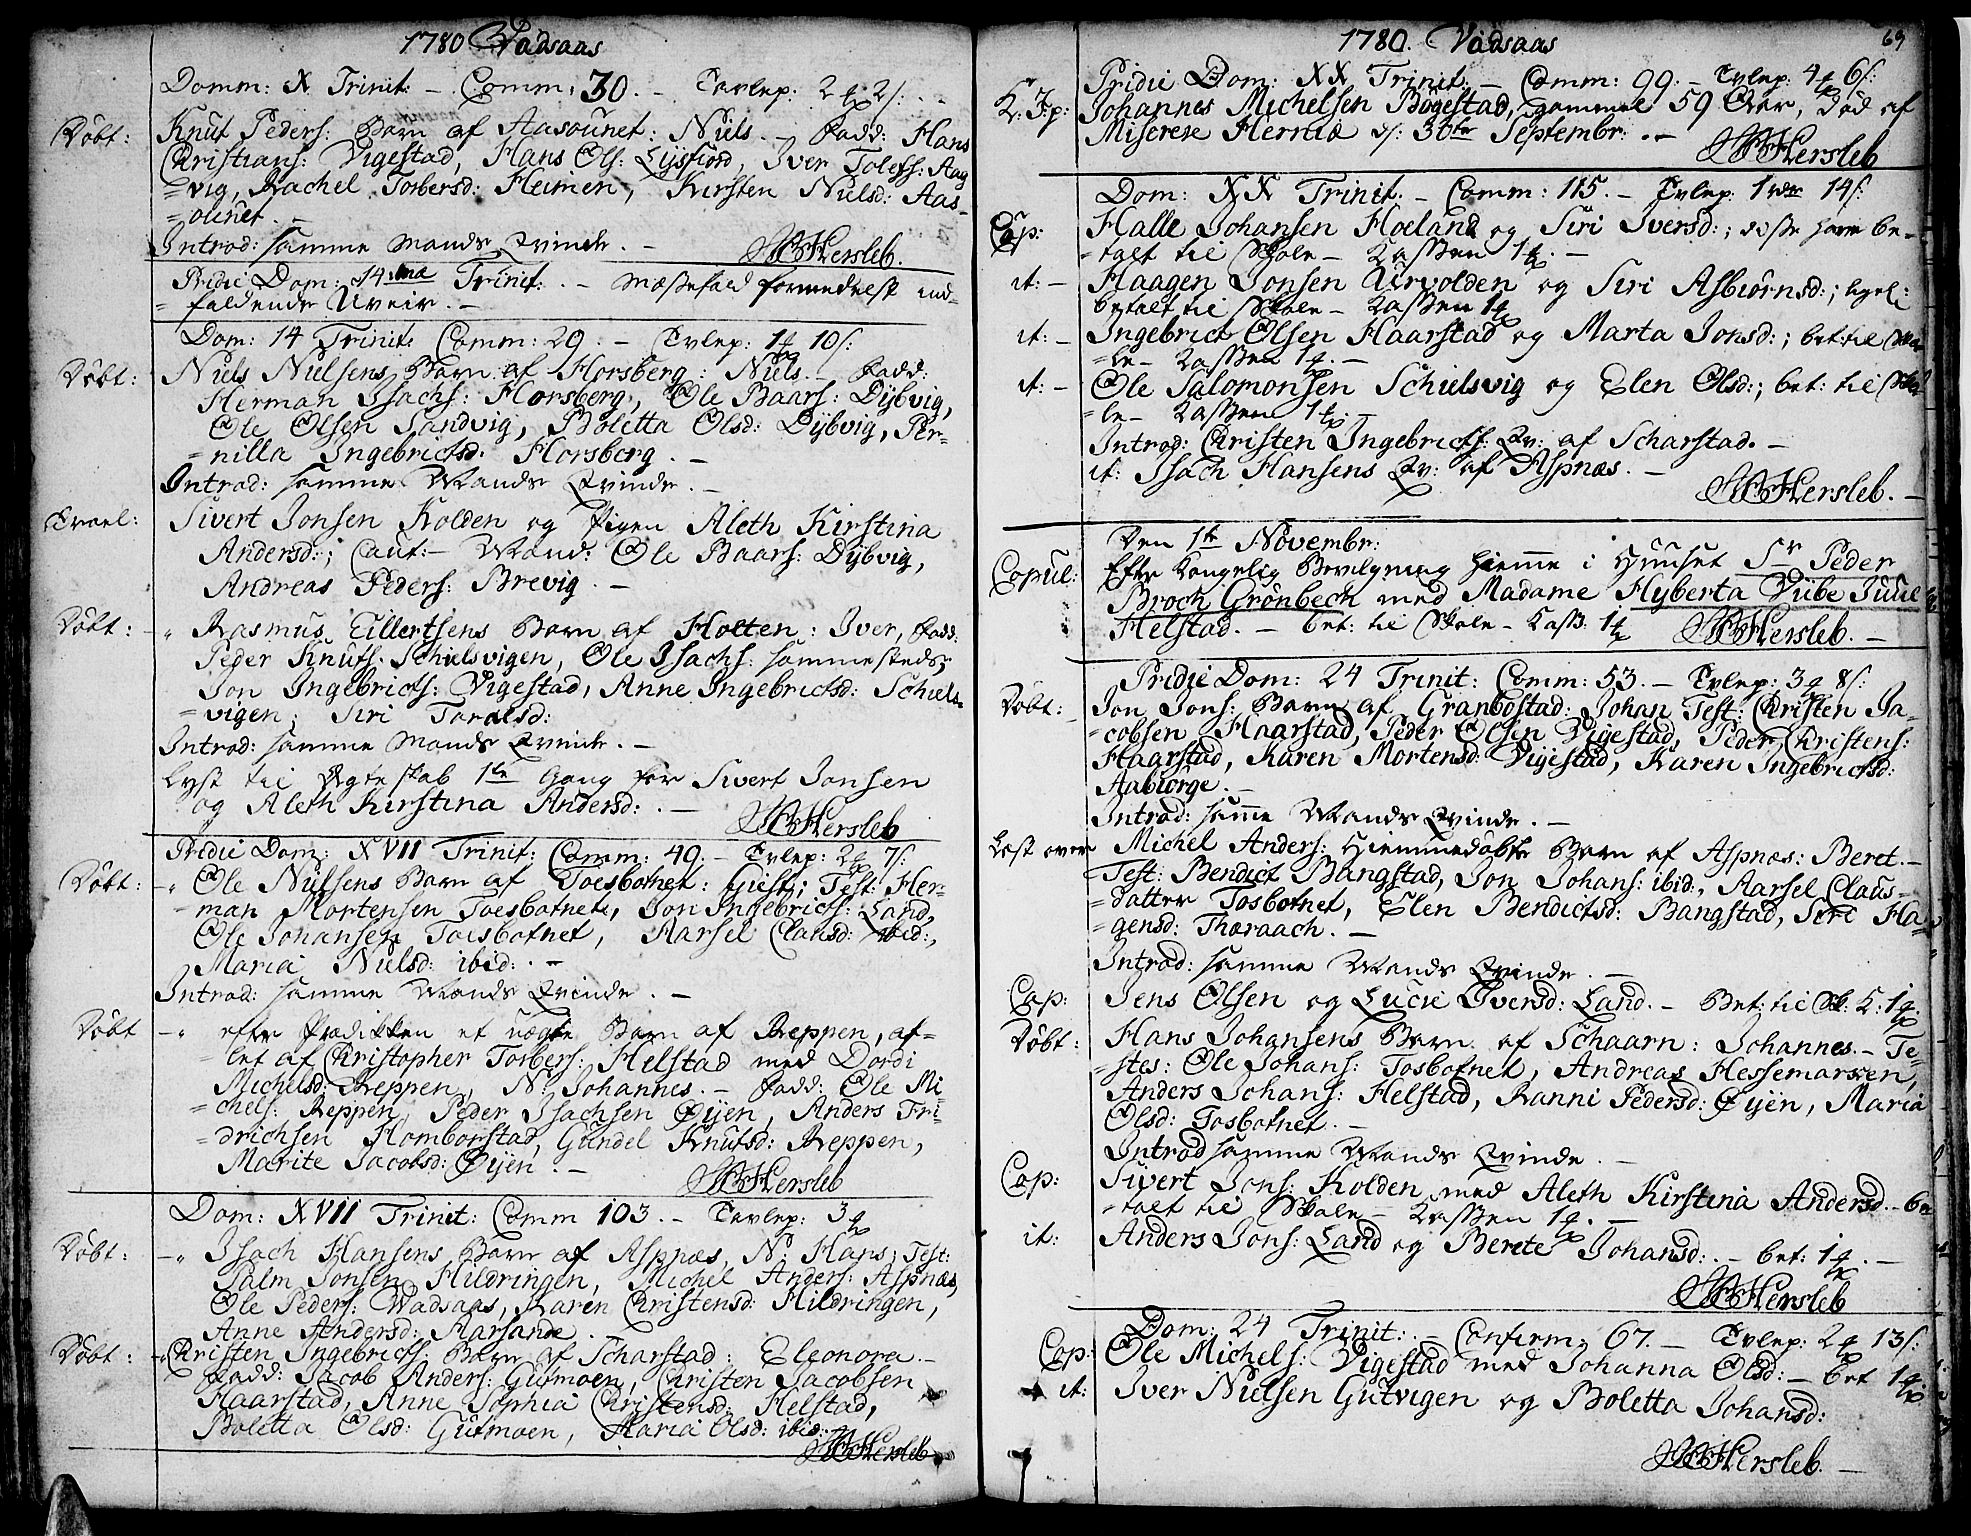 1780 Vadsaas
Domm: X Trinit: - Comm: 30. - Tavlep: 2 2 s: -
Döbt: Knut Peders: Barn af Aasounet: Niels. - Fadd: Hans
Christians: Vigestad, Hans Ols: Lysfiord, Iver Tolefs: Aag
=vig, Rachel Torbersd: Heimen, Kirsten Nielsd: Aas-
=ounet. -
Introd: samme Mands Qvinde. - Hersleb.
Pridie Dom: 14 Trinit: . - Messefald formedelst ind-
=faldende Uveir. -
Dom: 14 Trinit: Comm: 29. - Tvlep: 1 10 s:
Döbt: Niels Nielsens Barn af Horsberg: Niels. - Fadd:
Herman Isachs: Horsberg, Ole Baars: Dybvig,
Ole Olsen Sandvig, Boletta Olsd: Dybvig, Per-
=nilla Ingebrictsd: Horsberg. -
Introd: samme Mands Qvinde. -
Troel: Sivert Jonsen Kolden og Pigen Aleth Kirstina
Andersd:; Caut:- Mænd: Ole Baars: Dybvig,
Andreas Peders: Brevig. -
Döbt: -" Rasmus Eillertsens Barn af Holten: Iver, Fadd:
Peder Knuts: Schielsvigen, Ole Isachs: sammesteds,
Jon Ingebricts: Vigestad, Anne Ingebrictsd: Schiels-
=vigen, Siri Taralsd:
Introd: samme Mands Qvinde. -
Lyst til Ægteskab 1te Gang for Sivert Jonsen
og Aleth Kirstina Andersd: . - Hersleb
Pridie Dom: XVII Trinit: Comm: 49. - Tvlep: 2 7 s:
Döbt: -" Ole Nielsens Barn af Toesbotnet: Giert; Test: Her-
=man Mortensen Toesbotnet, Jon Ingebricts: Land,
Ole Johansen Toesbotnet, Aarsel Clausd: ibid:,
Maria Nielsd: ibid: . -
Introd: samme Mands Qvinde. -
Döbt -" efter Prædikken et uægte Barn af Reppen, af-
=let af Christopher Torbers: Helstad med Dordi
Michelsd: Reppen, N: Johannes. - Fadd: Ole Mi-
=chels: Reppen, Peder Isachsen Øyen, Anders Fri-
=drichsen Homborstad, Gundel Knutsd: Reppen,
Marite Jacobsd: Øyen. - Hersleb
Dom: XVII Trinit: Comm 103. - Tavlep: 3
Döbt: -" Isach Hansens Barn af Aspnæs, N: Hans; Test:
Palm Jonsen Hildringen, Michel Anders: Aspnæs,
Ole Peders: Vadsaas, Karen Christensd: Hildringen,
Anne Andersd: Aarsande.
Döbt: -" Christen Ingebricts: Barn af Scharstad: Eleonora. -
Fadd: Jacob Anders: Gutmoen, Christen Jacobsen
Haarstad, Anne Sophia Christensd: Helstad,
Boletta Olsd: Gutmoen, Maria Olsd: ibid: Hersleb
1780. Vadsaas 69
Pridie Dom: XX Trinit: - Comm: 99. - Tvlep: 4 6 s:
Johannes Michelsen Bögestad, gammel 59 Aar, död af
Miserere Herniæ d: 30te Septembr: . -
Hersleb
Dom: XX Trinit: - Comm: 115. - Tvlep: 1 14 s:
Cop: Halle Johansen Hoeland og Siri Iversd:; disse have be-
=talt til Skole-Kassen 1 . -
it: - Haagen Jonsen Urvolden og Siri Asbiörnsd:; ligel:
betalt til Skole-Kassen 1
it: - Ingebrict Olsen Haarstad og Marta Jonsd:; bet: til Sko-
=le-Kassen 1 . -
it: - Ole Salomonsen Schielsvig og Elen Olsd:; bet: til Sko-
=le-Kassen 1 . -
Introd: Christen Ingebricts: Qv: af Scharstad. -
it: Isach Hansens Qv: af Aspnæs. -
Hersleb. -
Den 1te Novembr:
Copul: Efter Kongelig Bevilgning hiemme i Huuset Sr Peder
Broch Grönbech med Madame Hyberta Vibe Juul
Helstad. - bet: til Skole-Kass: 1 Hersleb. -
Pridie Dom: 24 Trinit: Comm: 53. - Tvlep: 3 8 s:
Döbt: Jon Jons: Barn af Granbostad: Johan Test: Christen Ja-
=cobsen Haarstad, Peder Olsen Vigestad, Peder Christens:
Haarstad, Karen Mortensd: Vigestad, Karen Ingebrictsd:
Aabiörge. -
Introd: samme Mands Qvinde. -
Læst over Michel Anders: hiemmedöbte Barn af Aspnæs: Beret. -
Test: Bendict Bangstad, Jon Johans: ibid:, Aarsel Claus-
=datter Tosbotnet, Elen Bendictsd: Bangstad, Siri Ha-
=gensd: Thæraach. -
Introd: samme Mands Qvinde. -
Cop: Jens Olsen og Lucie Iversd: Land. - Bet: til Sk: K: 1
Döbt: Hans Johansens Barn af Schaarn: Johannes. - Te-
=stes: Ole Johans: Tosbotnet, Andreas Hessemarven,
Anders Johans: Helstad, Ranni Pedersd: Øyen, Maria
Olsd: Tosbotnet. -
Introd samme Mands Qvinde. -
Cop: Sivert Jons: Kolden med Aleth Kirstina Andersd. - be-
=talt til Skole-Kassen 1 . -
it: Anders Jons: Land og Berete Johansd: . - bet: 1 . -
Hersleb
Dom: 24 Trinit: . - Confirm: 67. - Tvlep: 2 13 s:
Cop: Ole Michels: Vigestad med Johanna Olsd: - bet 1
it: Iver Nielsen Gutvigen og Boletta Johansd:
Hersleb. -